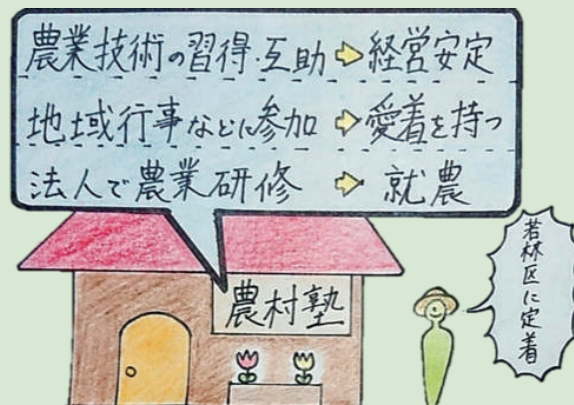 農業技術の習得・互助⇨経営安定
地域行事などに参加⇨愛着を持つ
法人で農業研修⇨就農
農村塾
若林区に定着